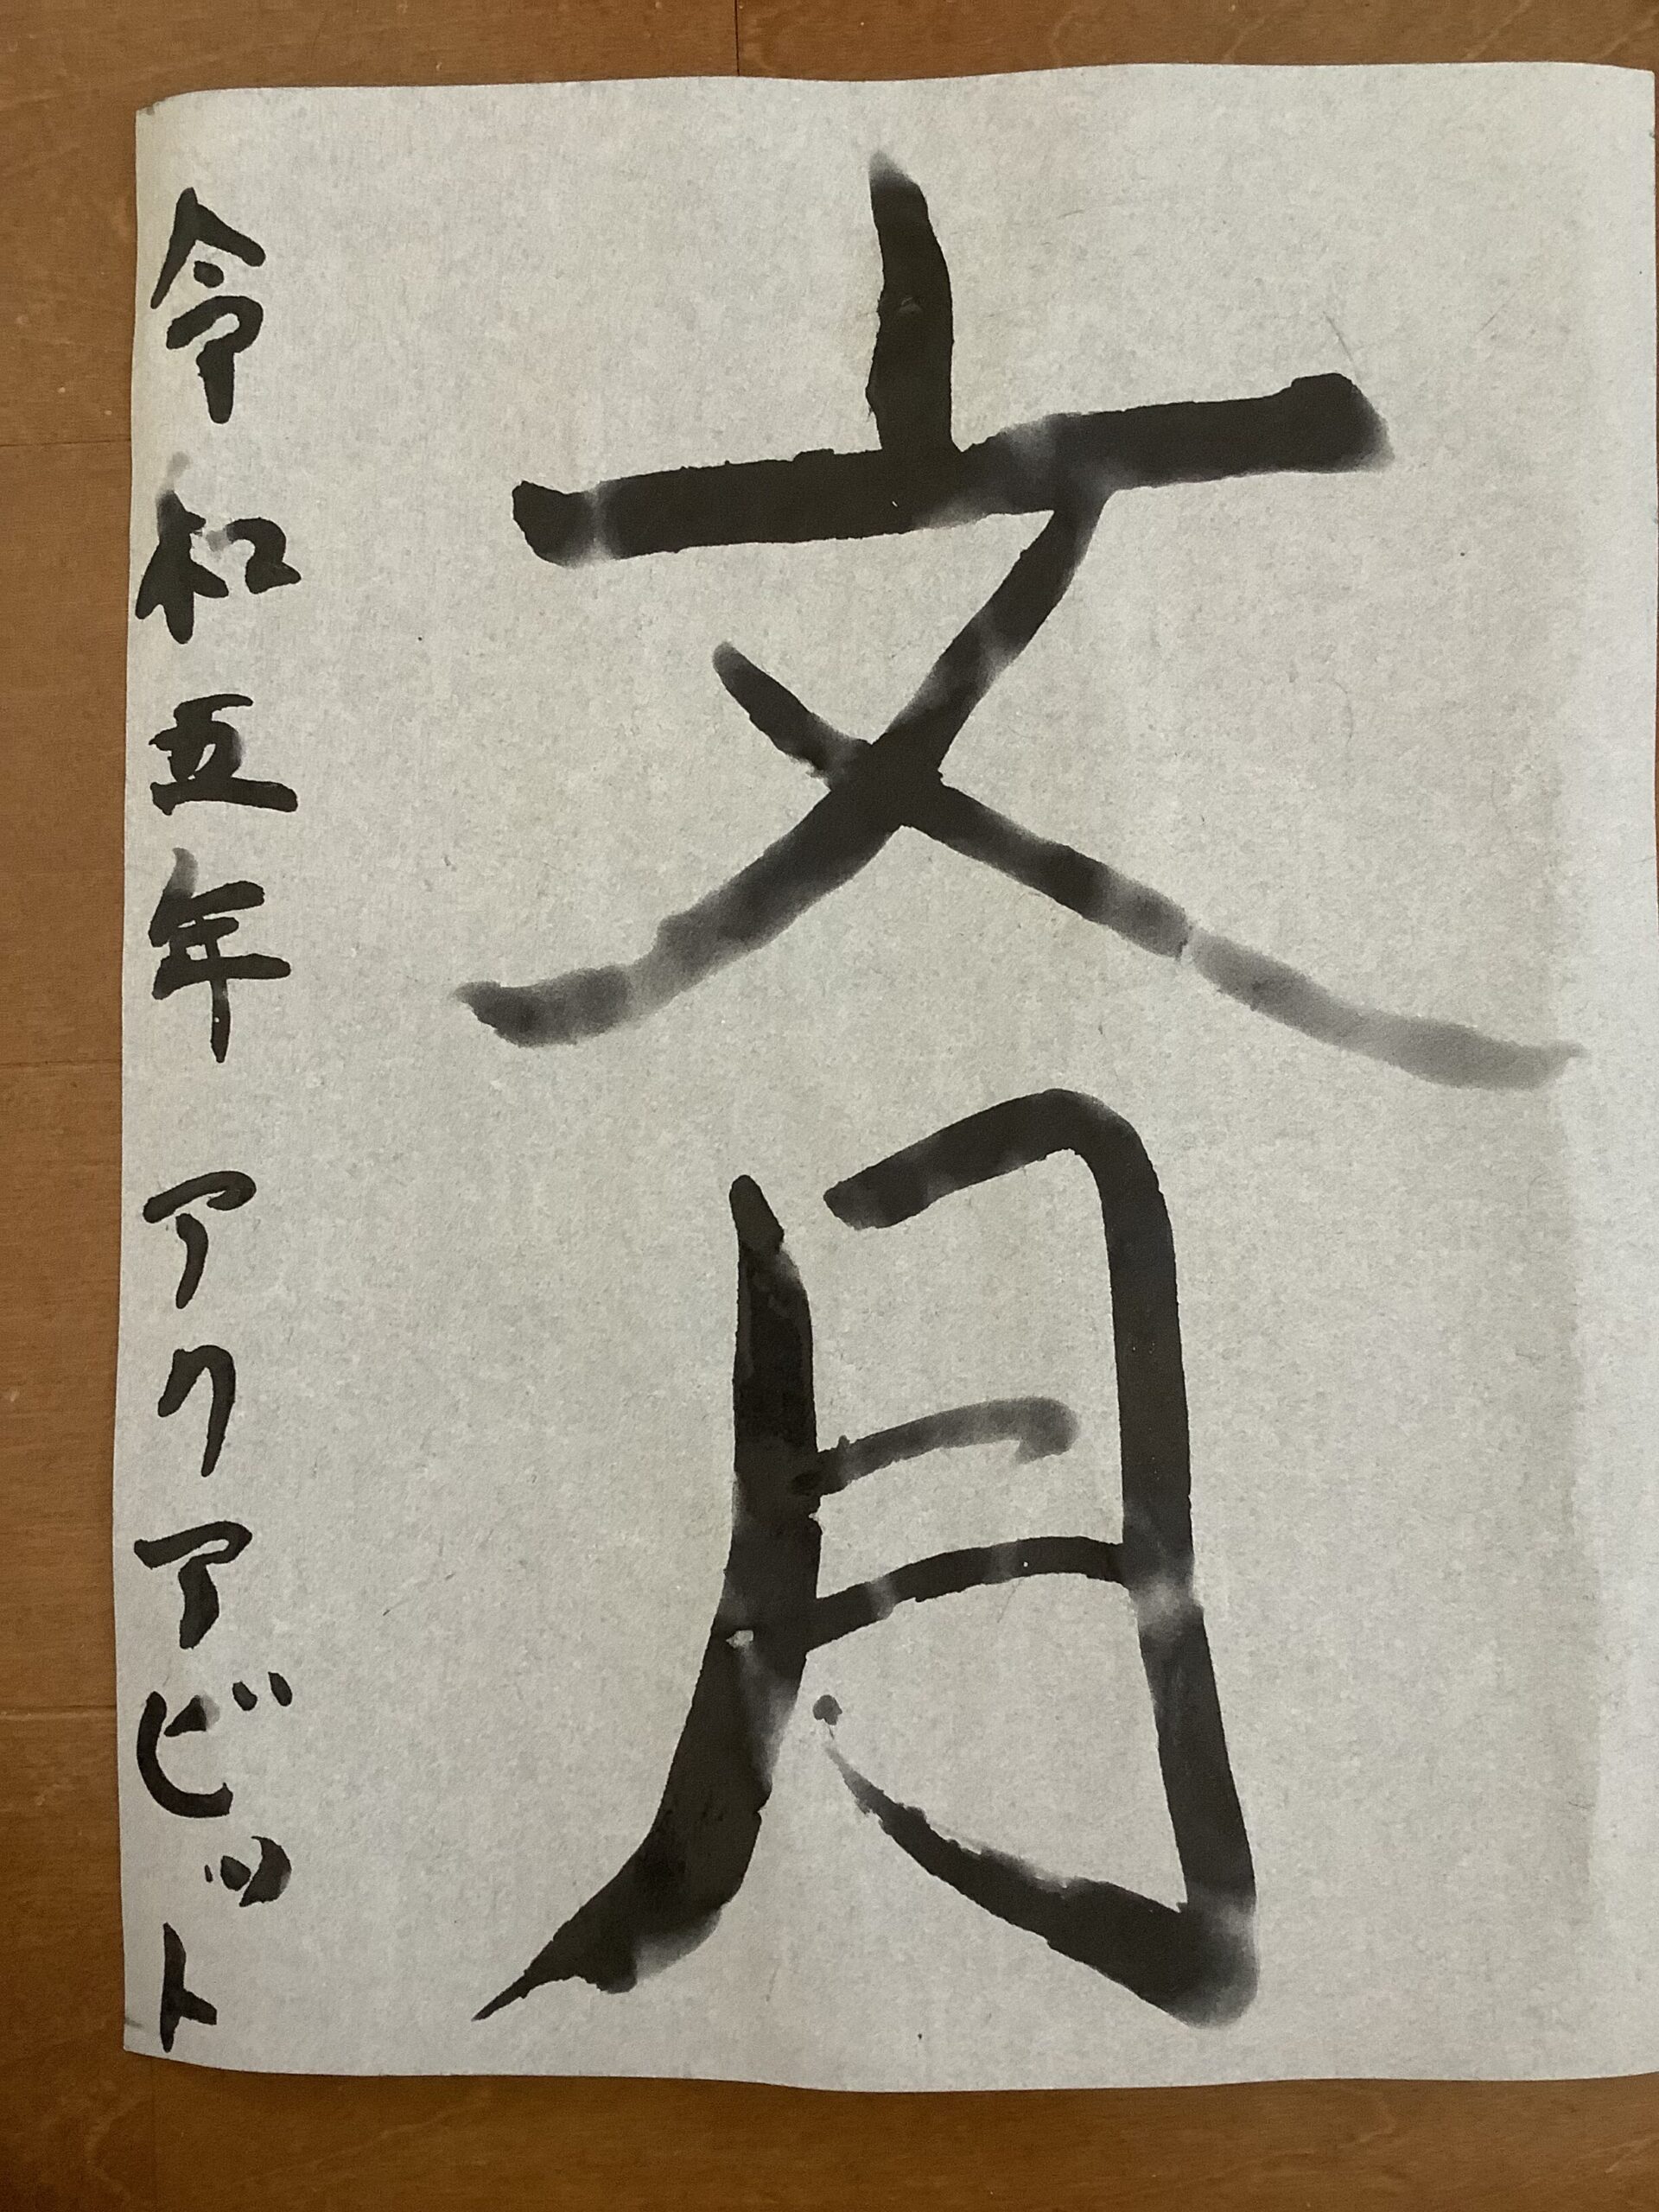 文月
令和五年 アクアビット